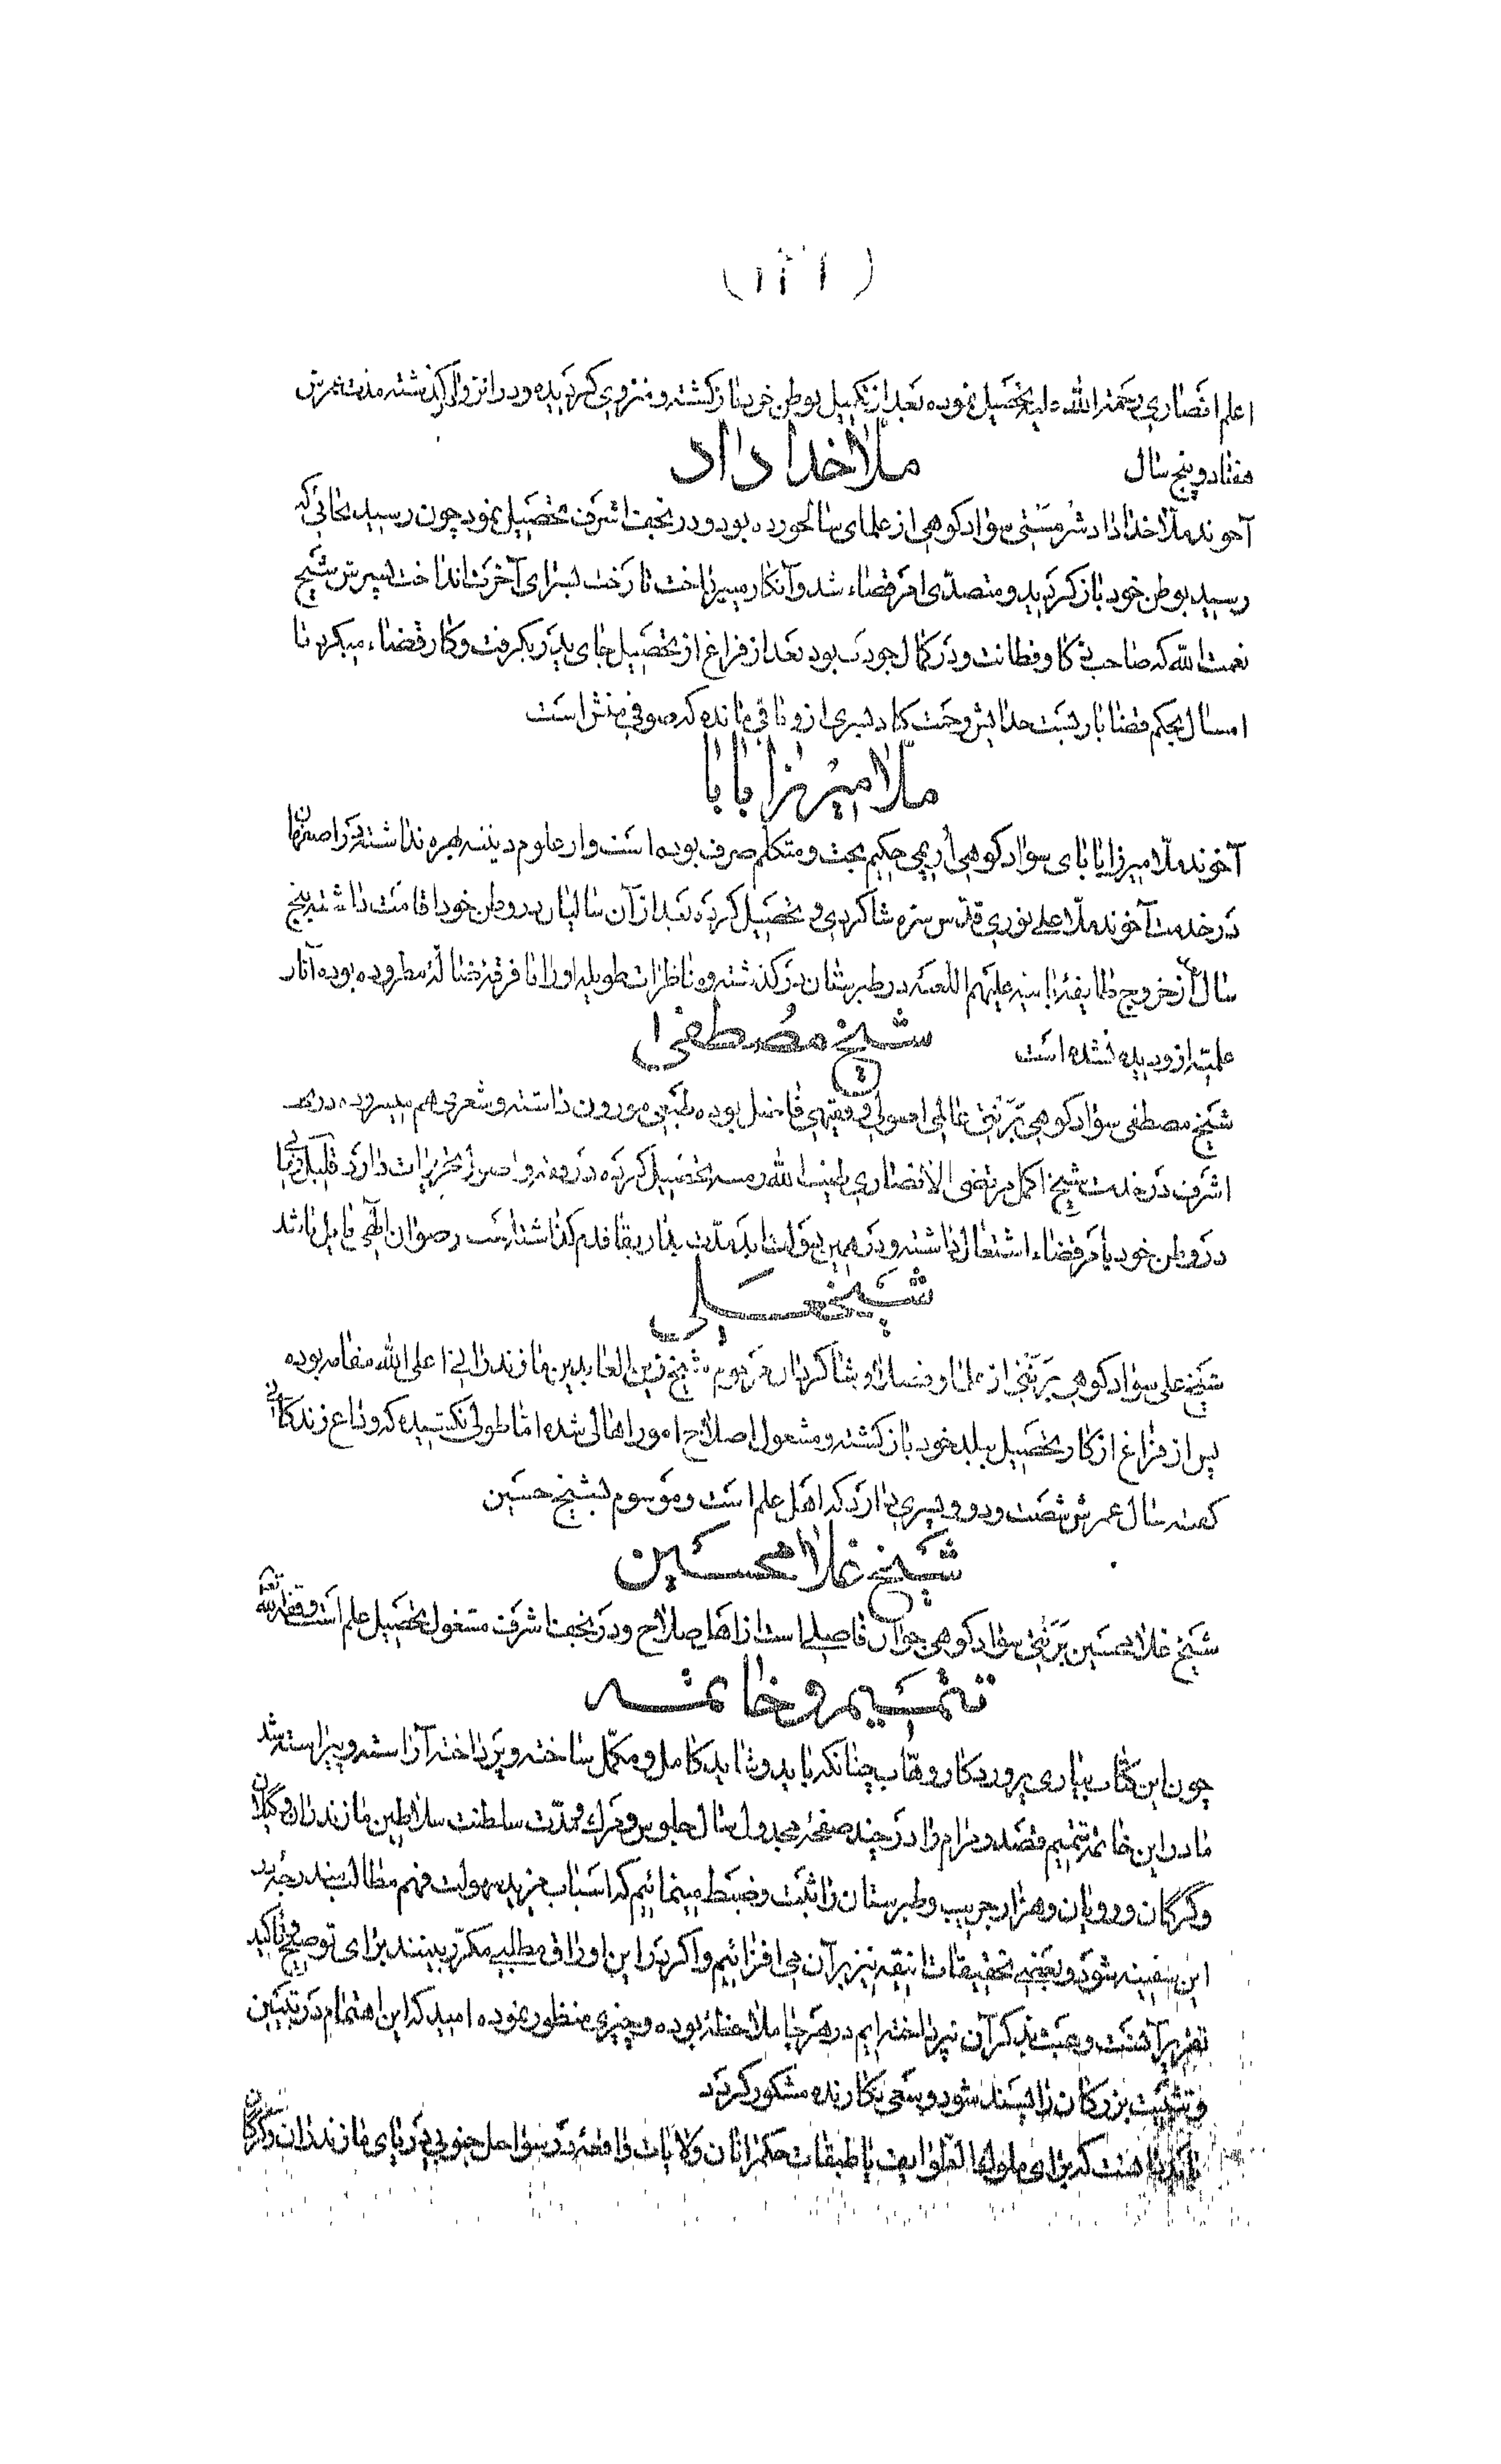 اعلم انصاری رحمة الله علیه تحصیل نموده بعد از تکمیل بوطن خود باز کشته و منزوی کردیده و در انزوا در گذشته مدت عمرش
هفتاد و پنج سال
ملا خداداد
آخوند ملا خداداد شرمستی سوادکوهی از علمای سالخورده بود و در نجف اشرف تحصیل نمود چون رسید بجائی که
رسید بوطن خود باز کردید و متصدّی امر قضاء شد و آنکار میپرداخت تا رخت بسرای آخرت انداخت پسرش شیخ
نعمت الله که صاحب ذکا و فطانت و در کمال جودت بود بعد از فراغ از تحصیل جای پدر بکرفت و کار قضاء میکرد تا
امسال بحکم قضا بار بست خدایش رحمت کناد پسری ازو باقی مانده که
ملا میرزا بابا
آخوند ملا میرزا بابای سوادکوهی اریمی حکیم بحت و متکلم صرف بوده است و از علوم دینیه بهره نداشته در اصفهان
در خدمت آخوند ملا علی نوری قدّس سره شاکردی و تحصیل کرده بعد از آن سالیان در وطن خود اقامت داشته پنج
سال از خروج طایفهٔ بابیه علیهم اللعنه در طبرستان در کذشته و مناظرات طویله او را با فرقهٔ ضالّهٔ مطروده بوده آثار
علمیّه ازو دیده نشده است
شیخ مصطفی
شیخ مصطفی سوادکوهی برنتی عالمی اصولی و فقیهی فاضل بوده طبعی موزون داشته و شعر هم میسروده در نجف
اشرف در خدمت شیخ اکمل مرتضی الانصاری طیب الله رمسه تحصیل کرده در فقه و اصول تحریرات دارد قلیل زمانی
در وطن خود بامر قضاء اشتغال داشته و در همین بدار بقا قدم گذاشتا رب رضوان الهی نایل باشد
شیخعلی
شیخ علی سوادکوهی برنتی از علما و فضلا و شاکردان مرحوم شیخ زین العابدین مازندرانی اعلی الله مقامه بوده
پس از فراغ از کار تحصیل ببلد خود باز کشته و مشغول اصلاح امور اهالی شده اما طولی نکشیده که وداع زندکانی
کفته سال عمرش شصت و دو و پسری دارد که اهل علم است و موسوم بشیخ حسین
شیخ غلامحسین
شیخ غلامحسین برنتی سوادکوهی جوان فاضلی است از اهل صلاح و در نجف اشرف مشغول تحصیل علم است وفقه الله تعالی
تتمیم و خاتمه
چون این کتاب بیاری پروردکار وهّاب چنانکه باید و شاید کامل و مکمّل ساخته و پرداخته آراسته و پیراسته شد
ما در این خاتمه تتمیم قصد و مرام را در چند صفحهٔ مجدول سال جلوس و مرک و مدّت سلطنت سلاطین مازندران و گیلان
و کرکان و رویان و هزار جریب و طبرستان را ثبت و ضبط مینمائیم که اسباب مزید سهولت فهم مطالب مندرجه در
این سفینه شود و بعضی تحقیقات انیقه نیز بر آن می افزائیم و اکر در این اوراق مطلبی مکرّر ببینند برای توضیح و تاکید
تقریر آنست و عبث بذکر آن نپرداخته ایم در هر جا ملاحظهٔ بوده و چیزی منظور نموده امید که این اهتمام در تبیین
و تثبیت بزرکان را پسند شود و سعی نکارنده مشکور کردد
باید دانست که برای ملوک الطوایف یا طبقات حکمرانان ولایات واقعهٔ در سواحل جنوبی دریای مازندران و گرگان